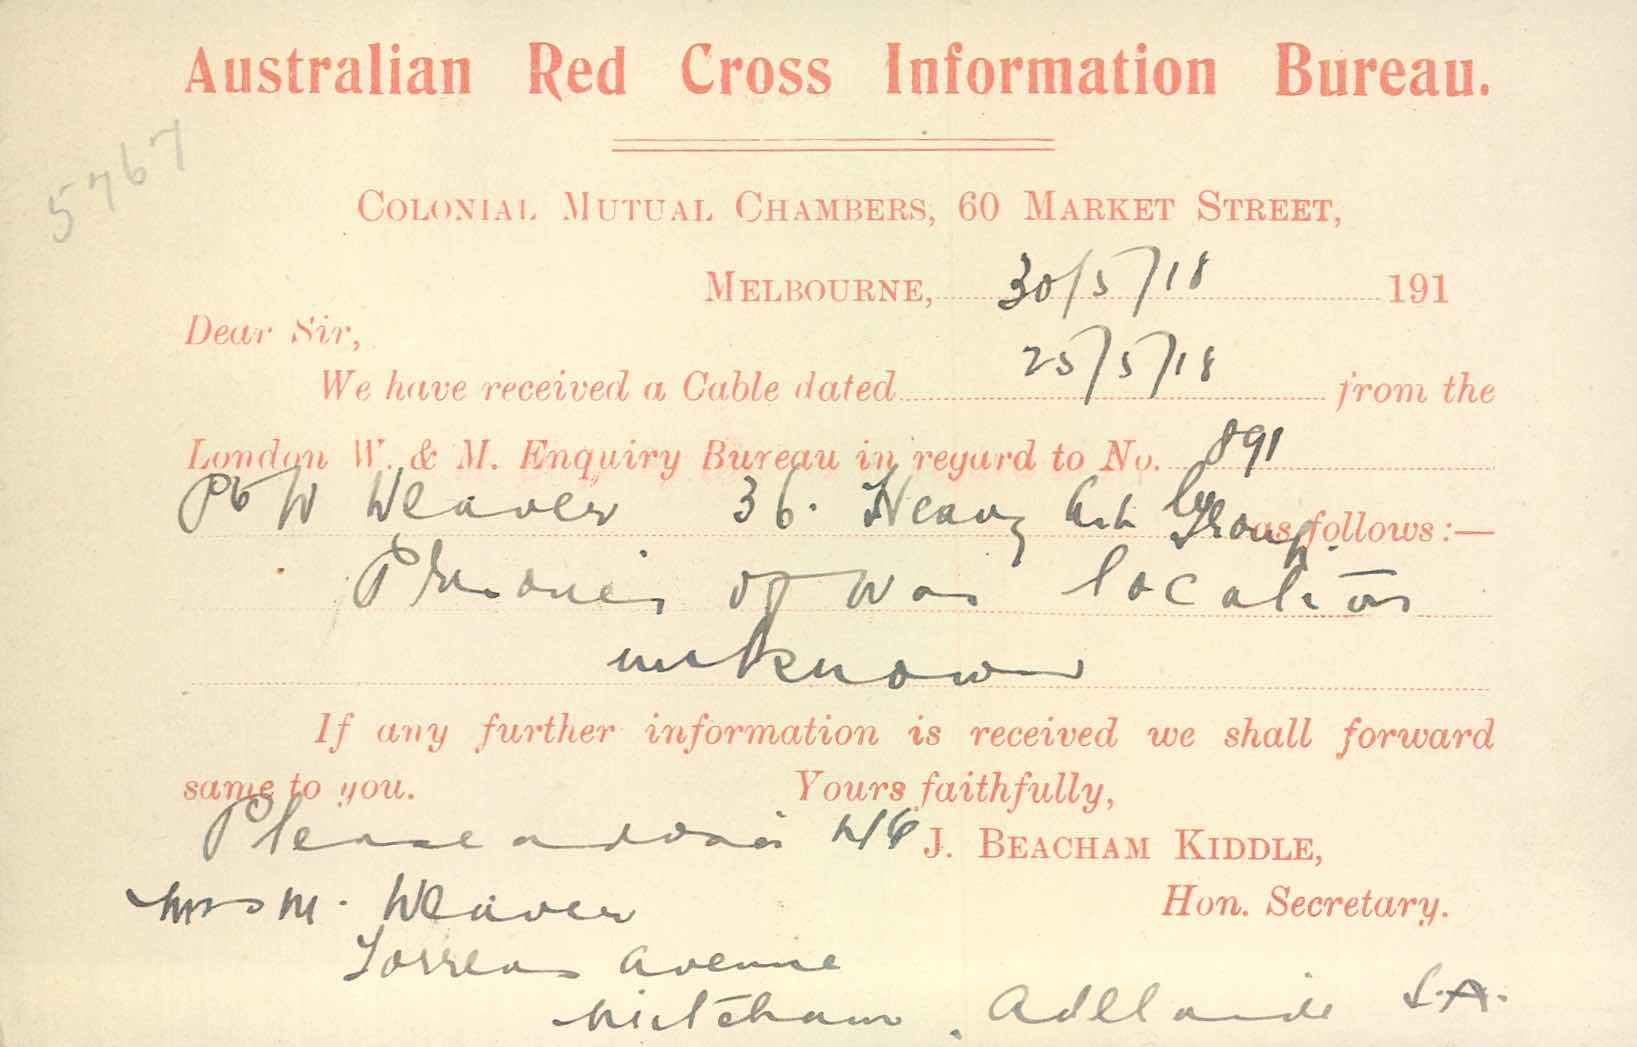 Australian Red Cross Information Bureau.
5767
COLONIAL MUTUAL CHAMBERS, 60 MARKET STREET,
MELBOURNE, 30/5/18 191
Dear Sir,
We have received a Cable dated 25/5/18 from the
London W. & M. Enquiry Bureau in regard to No. 891
Pte W Weaver 36. Heavy Art Group as follows:—
Prisoner of war location
unknown
If any further information is received we shall forward
same to you. Yours faithfully,
Please advise J. BEACHAM KIDDLE,
Mrs M. Weaver Hon. Secretary.
Torrens Avenue
Mitcham. Adelaide S.A.